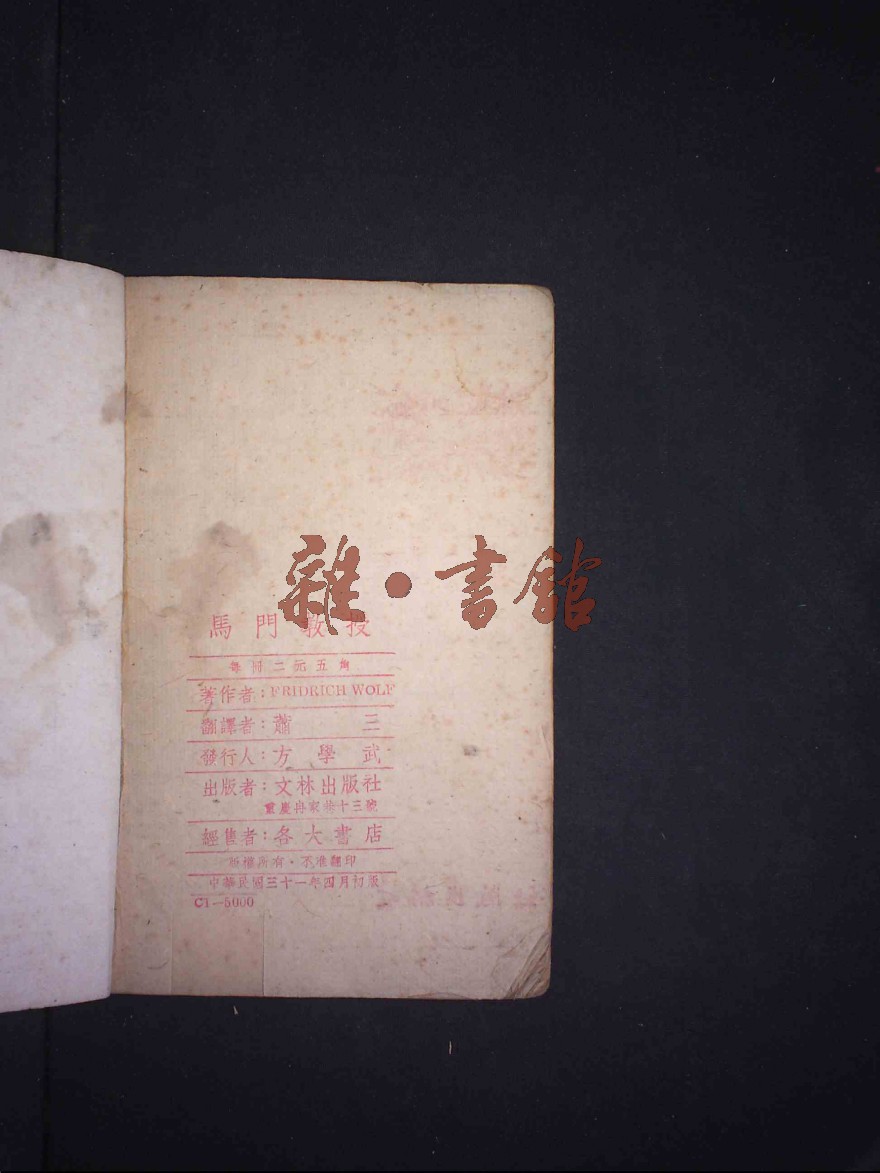 雜·書館
馬門教授
每冊二元五角
著作者：FRIDRICH WOLF
翻譯者：蕭三
發行人：方學武
出版者：文林出版社
重慶冉家巷十三號
經售者：各大書店
版權所有·不准翻印
中華民國三十一年四月初版
C1—5000